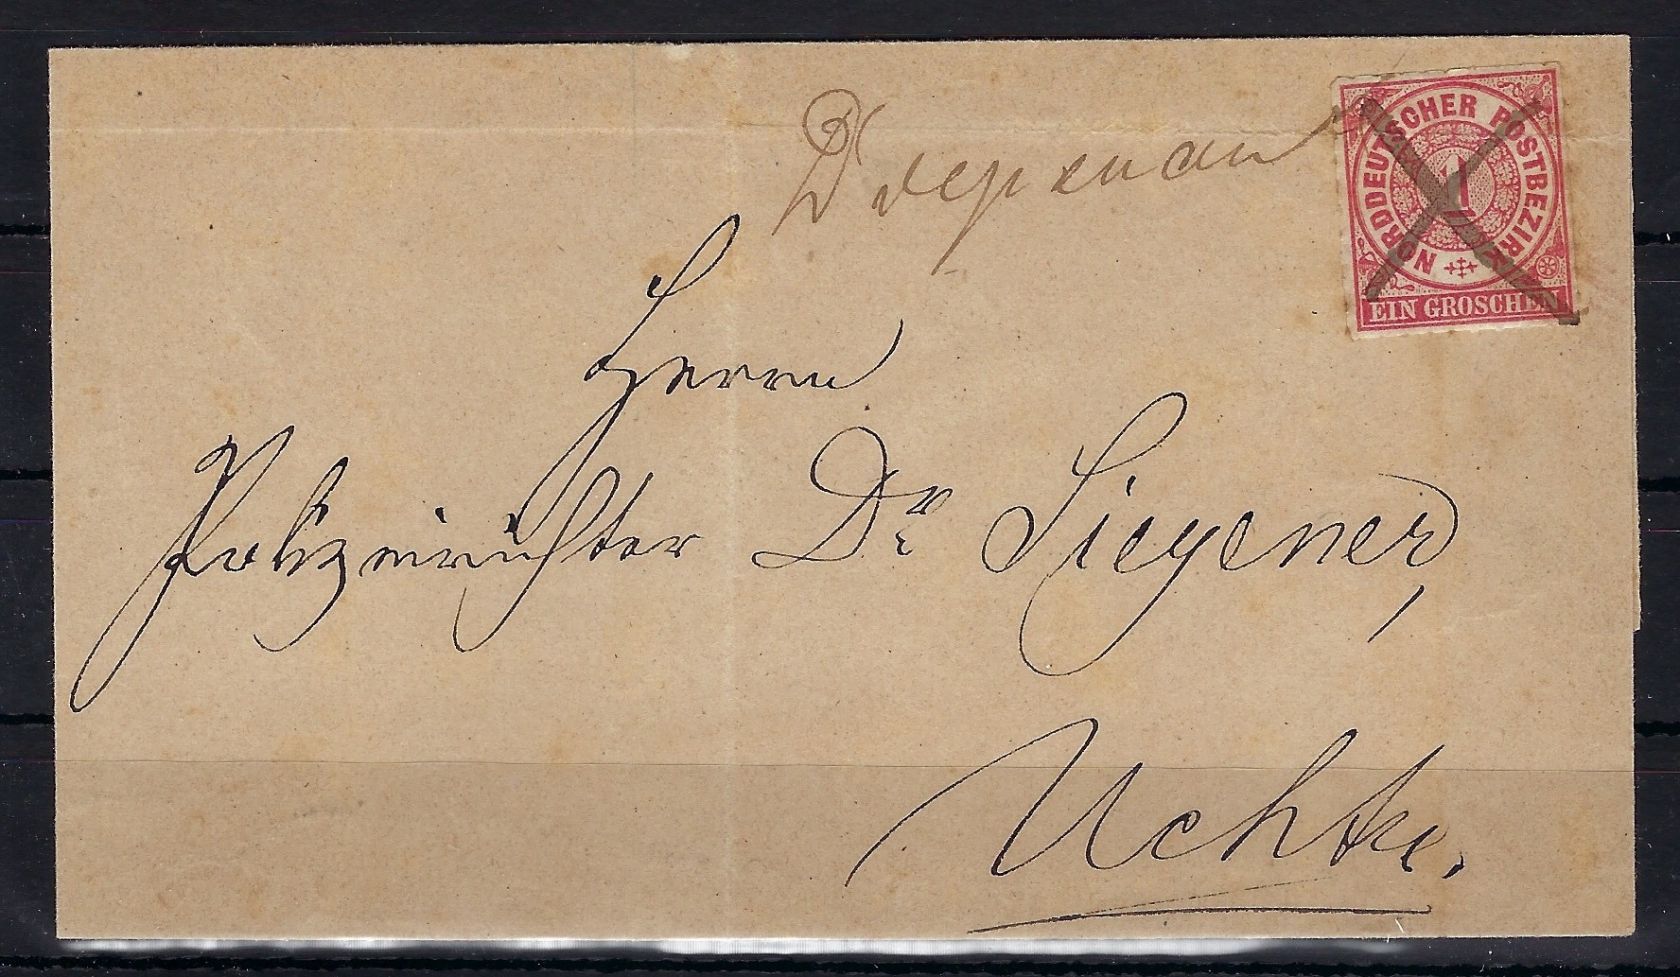 Diepenau
NORDDEUTSCHER POSTBEZIRK
1
EIN GROSCHEN
Herrn
Polizeirichter Dr Siegener,
Uchte.